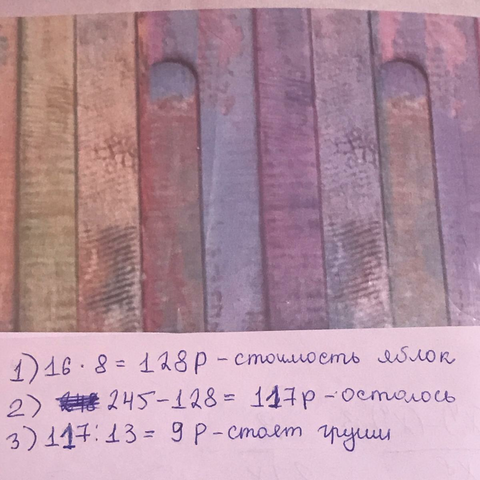 1) 16 · 8 = 128 р – стоимость яблок
2) 245 – 128 = 117 р – осталось
3) 117 : 13 = 9 р – стоят груши